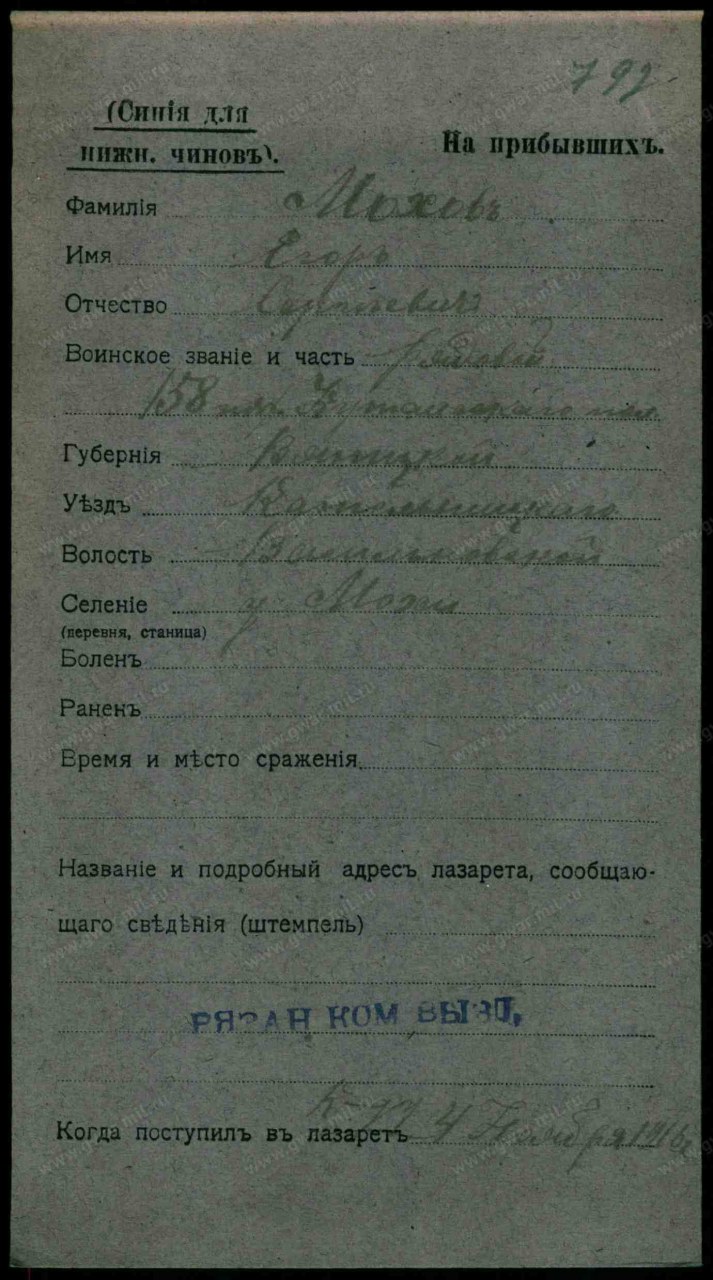 792
(Синія для
нижн. чиновъ).
На прибывшихъ.
Фамилія Моховъ
Имя Егоръ
Отчество Сергѣевичъ
Воинское званіе и часть рядовой
158 пѣх. Кутаискаго пол
Губернія Вятской
Уѣздъ
Волость
Селеніе
(перевня, станица)
Боленъ
Раненъ
Время и мѣсто сраженія
Названіе и подробный адресъ лазарета, сообщаю-
щаго свѣдѣнія (штемпель)
РЯЗАН КОМ ВЫЗД.
Когда поступилъ въ лазаретъ 4 Ноября 1916 г